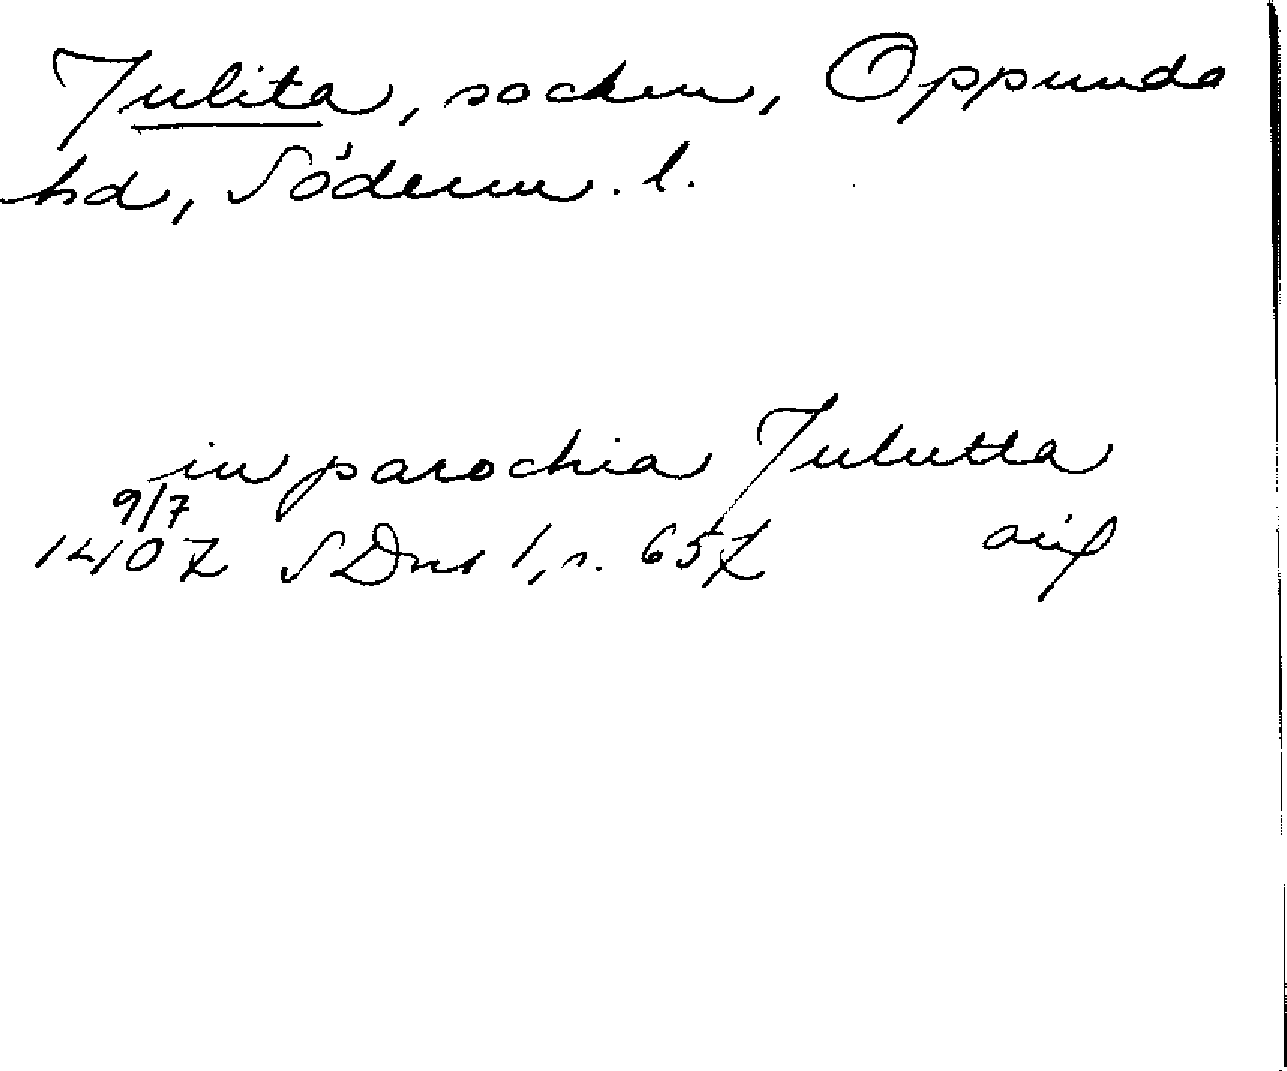 Julita, socken, Oppunda
hd, Söderm. l.
in parochia Julutta
9/7
1407 SDns 1, s. 657 orig